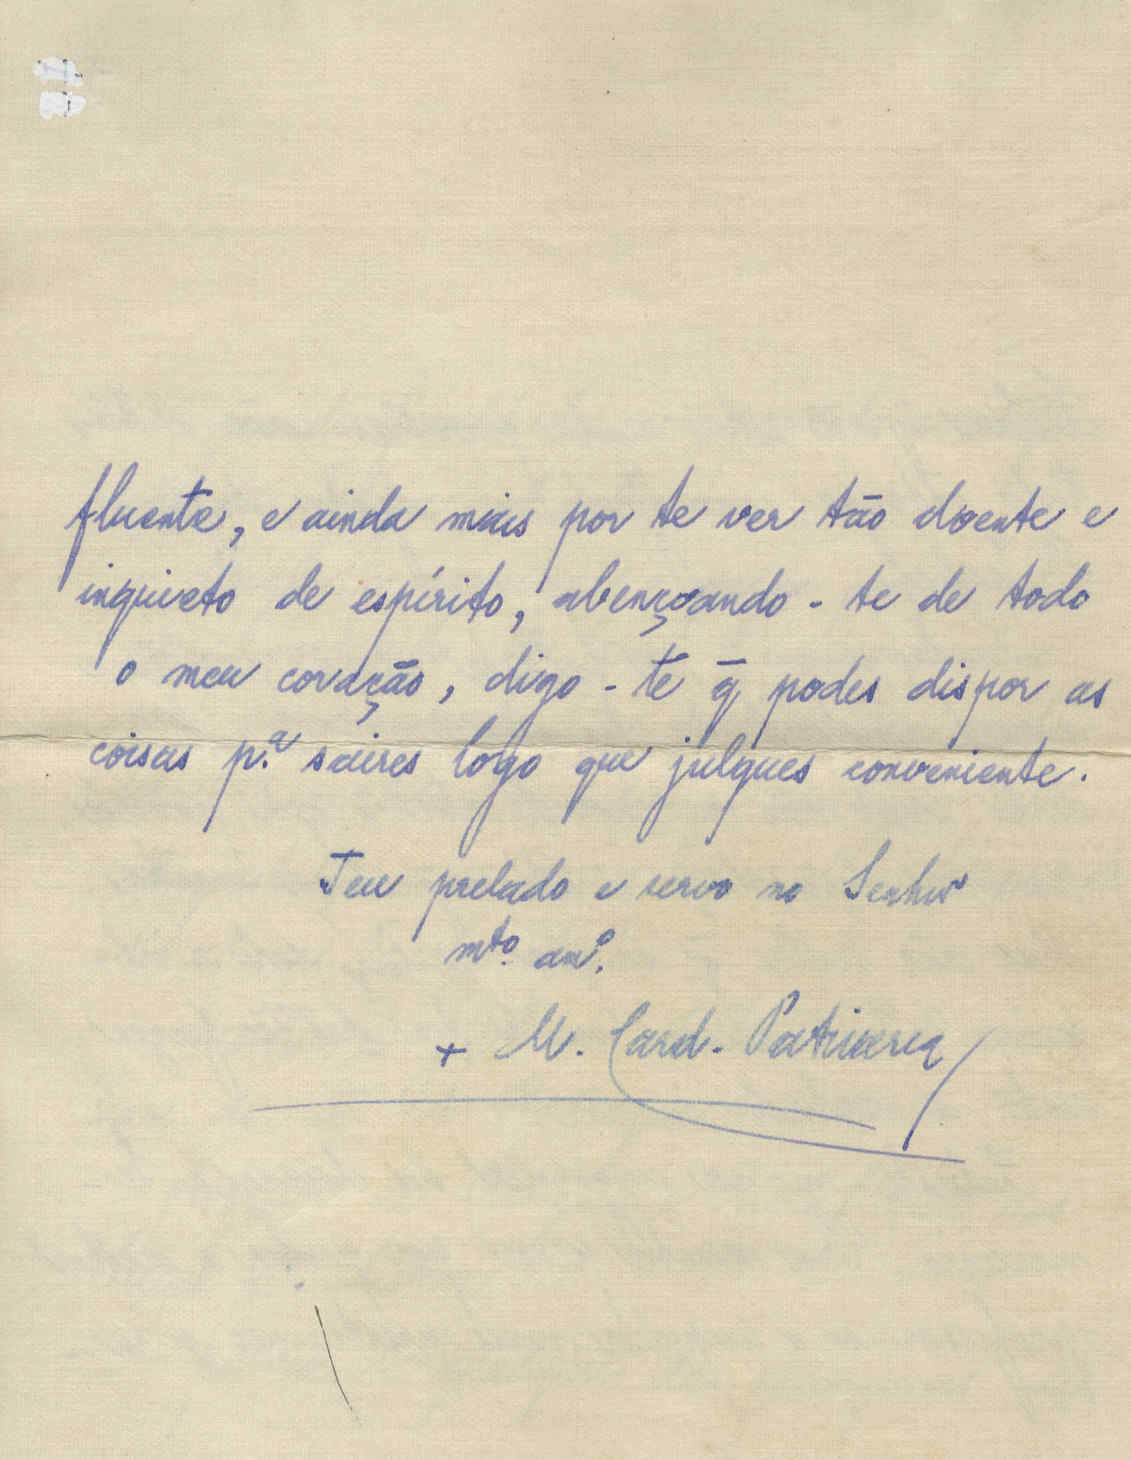 fluente, e ainda mais por te ver tão doente e
inquieto de espírito, abençoando-te de todo
o meu coração, digo-te q̄ podes dispor as
coisas p.ª saires logo que julgues conveniente.
Teu prelado e servo no Senhor
mto. amº.
+ M. Card. Patriarca